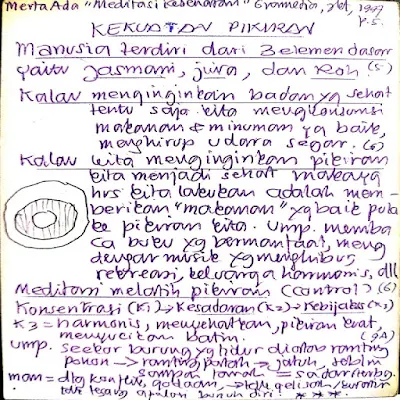 Merta Ada "Meditasi Kesehatan" Gramedia, Jkt, 1999
KEKUATAN PIKIRAN
Manusia terdiri dari 3 elemen dasar
yaitu Jasmani, jiwa, dan Roh (5)
Kalau menginginkan badan yg sehat
tentu saja kita mengkonsumsi
makanan & minuman yg baik,
menghirup udara segar. (6)
Kalau kita menginginkan pikiran
kita menjadi sehat makaya
hrs kita lakukan adalah mem-
berikan "makanan" yg baik pula
ke pikiran kita. Ump. memba
ca buku yg bermanfaat, meng
dengar musik yg menghibur,
rekreasi, keluarga harmonis, dll
Meditasi melatih pikiran (control) (6)
Konsentrasi (K1) → Kesadaran (K2) → Kebijaks (K3)
K3 = harmonis, menyehatkan, pikiran kuat,
menyucikan batin.
Ump. seekor burung yg tidur diatas ranting
pohon → ranting patah → jatuh, sebelum
sampai tanah = sadar terbang.